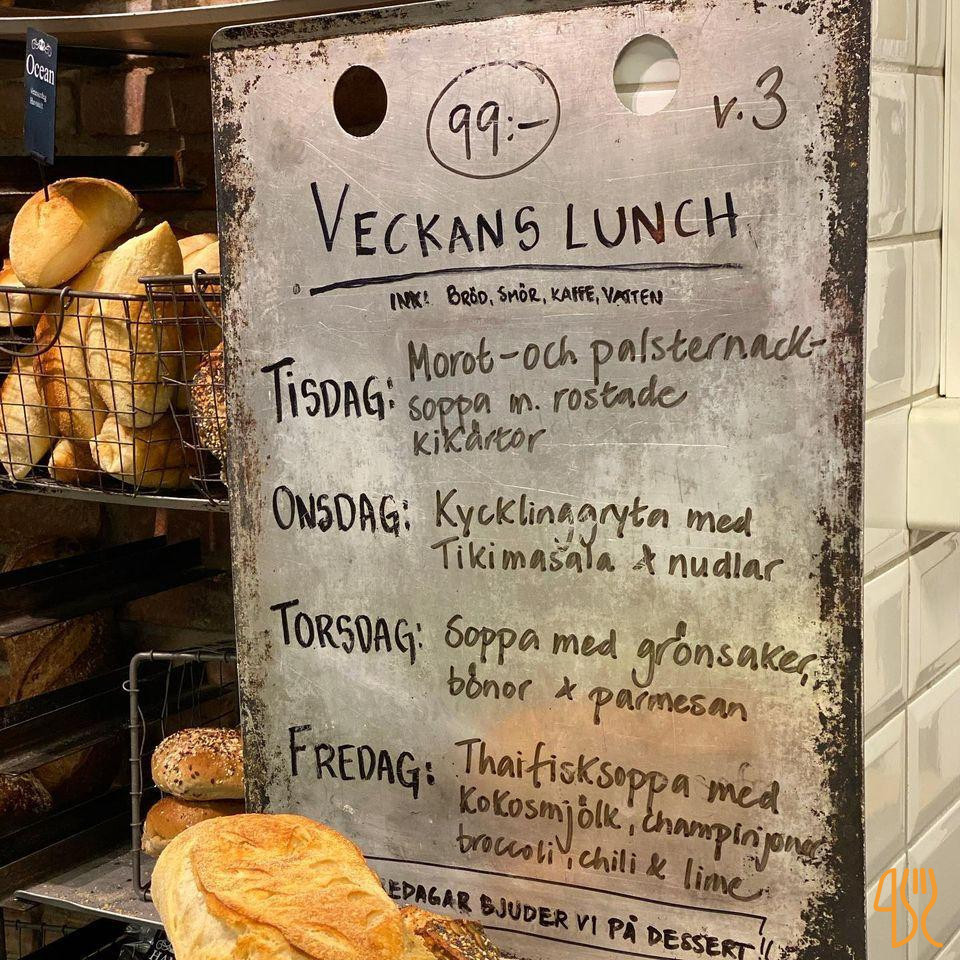 Ocean
99:-
v.3
VECKANS LUNCH
INK! BRÖD, SMÖR, KAFFE, VATTEN
TISDAG: Morot-och palsternack-
soppa m. rostade
kikärtor
ONSDAG: Kycklinggryta med
Tikimasala & nudlar
TORSDAG: Soppa med grönsaker,
bönor & parmesan
FREDAG: Thaifisksoppa med
kokosmjölk, champinjoner
broccoli, chili & lime
EDAGAR BJUDER VI PÅ DESSERT!!